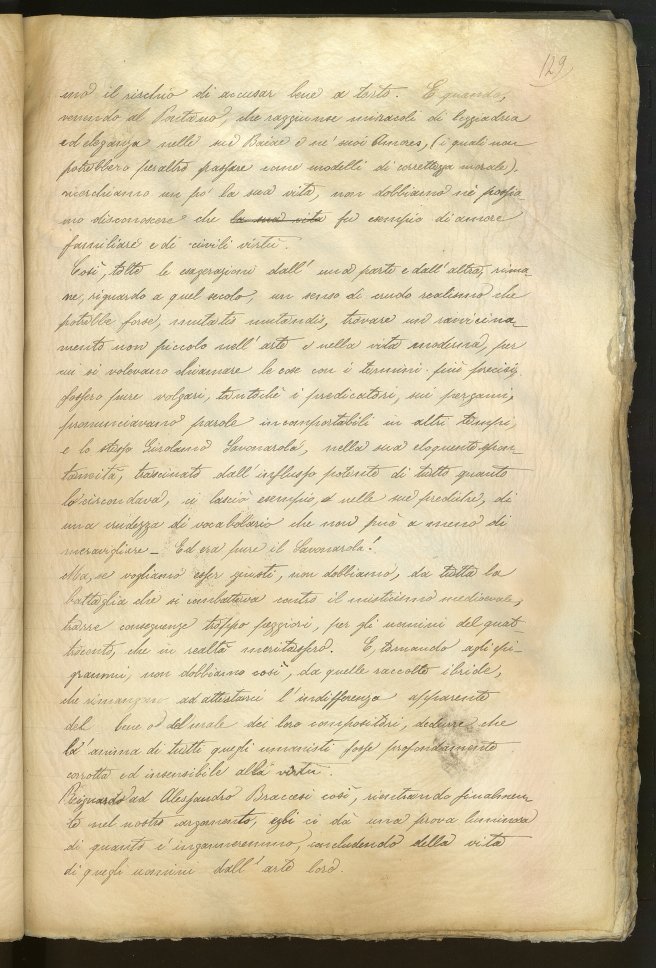 129
mo il rischio di accusar bene a torto. E quando,
venendo al Pontano, che raggiunse miracoli di leggiadria
ed eleganza nelle sue Baiae e ne' suoi Amores, (i quali non
potrebbero peraltro passare come modelli di correttezza morale),
cerchiamo un po' la sua vita, non dobbiamo nè possia-
mo disconoscere che la sua vita fu esempio di amore
famigliare e di civili virtù.
Così, tolte le esagerazioni dall' una parte e dall' altra, rima-
ne, riguardo a quel secolo, un senso di crudo realismo che
potrebbe forse, mutatis mutandis, trovare un ravvicina-
mento non piccolo nell' arte e nella vita moderna, per
cui si volevano chiamare le cose con i termini più precisi,
fossero pure volgari, tantochè i predicatori, sui pergami,
pronunciavano parole incomportabili in altri tempi,
e lo stesso Girolamo Savonarola, nella sua eloquente spon-
taneità, trascinato dall' influsso potente di tutto quanto
lo circondava, ci lasciò esempio, e nelle sue prediche, di
una crudezza di vocabolario che non può a meno di
meravigliare - Ed era pure il Savonarola!
Ma, se vogliamo esser giusti, non dobbiamo, da tutta la
battaglia che si combatteva contro il misticismo medioevale,
trarre conseguenze troppo peggiori, per gli uomini del quat-
trocento, che in realtà meritassero. E, tornando agli epi-
grammi, non dobbiamo così, da quelle raccolte ibride,
che rimangono ad attestarci l' indifferenza apparente
del bene o del male dei loro compositori, dedurre che
l' anima di tutti quegli umanisti fosse profondamente
corrotta ed insensibile alla virtù.
Riguardo ad Alessandro Braccesi così, rientrando finalmen-
te nel nostro argomento, egli ci dà una prova luminosa
di quanto c' inganneremmo, concludendo della vita
di quegli uomini dall' arte loro.